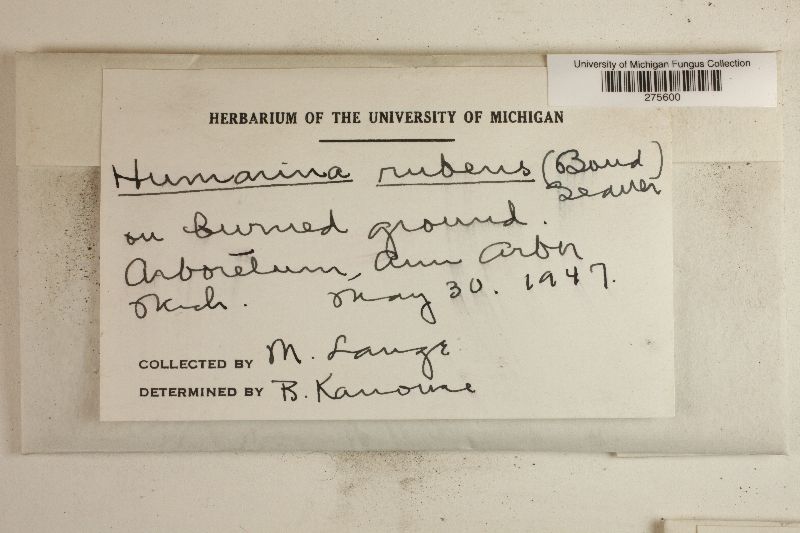 University of Michigan Fungus Collection
275600
HERBARIUM OF THE UNIVERSITY OF MICHIGAN
Humarina rubens (Boud)
Seaver
on burned ground.
Arboretum, Ann Arbor
Mich. May 30. 1947.
COLLECTED BY M. Lange
DETERMINED BY B. Kanouse